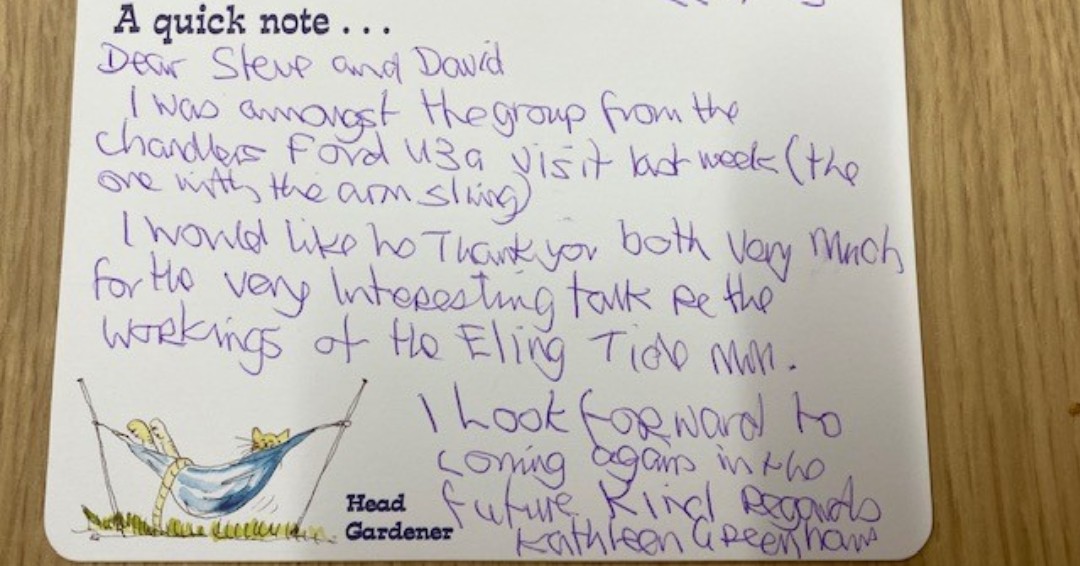 A quick note . . .
Dear Steve and David
I was amongst the group from the
Chandlers Ford u3a visit last week (the
one with the arm sling)
I would like to Thank you both very much
for the very Interesting talk re the
workings of the Eling Tide Mill.
I Look forward to
coming again in the
future Kind Regards
Kathleen Greenham
Head
Gardener